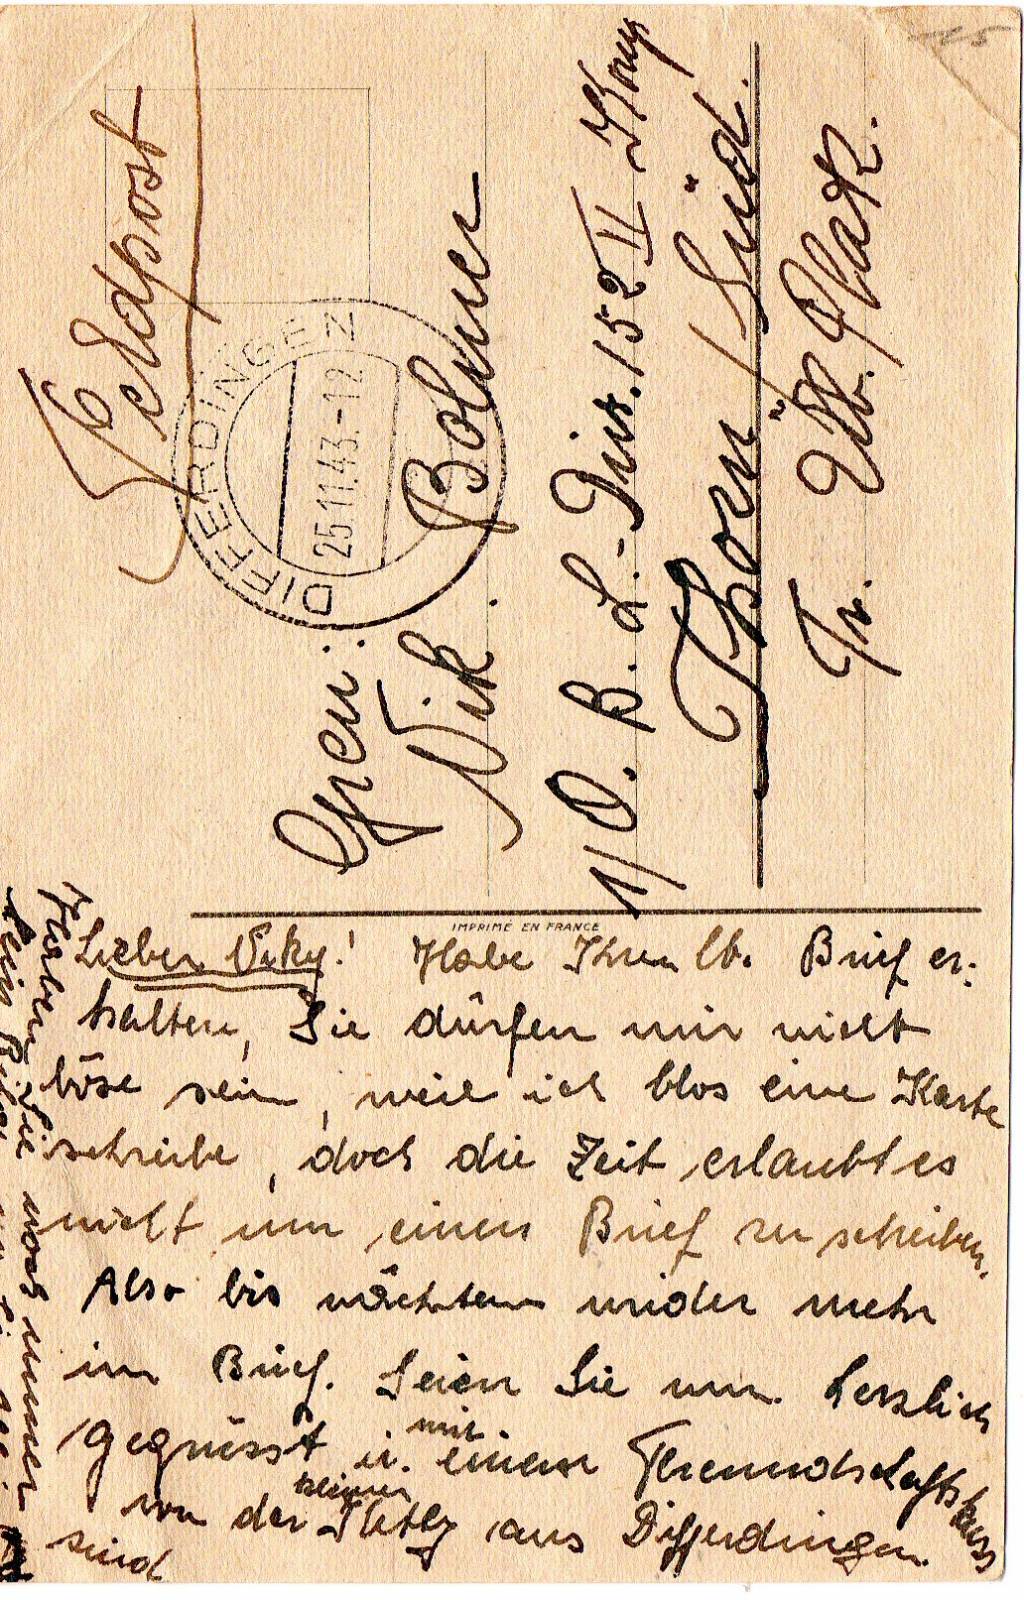 Feldpost
DIFFERDINGEN
25.11.43.-12
Nik. Bolmer
1/ B. L.-Div. 152 II
Thorn / Süd.
Tr. Üb. Platz.
IMPRIMÉ EN FRANCE
Lieber Niky! Habe Ihren lb. Brief er-
halten, Sie dürfen mir nicht
böse sein, weil ich blos eine Karte
schreibe, doch die Zeit erlaubt es
nicht um einen Brief zu schreiben.
Also bis nächtens wider mehr
im Brief. Seien Sie nun herzlich
gegrüsst u. mit einem Freundschaftskuss
von der kleinen aus Differdingen.
Haben Sie noch immer
kein
sind
15